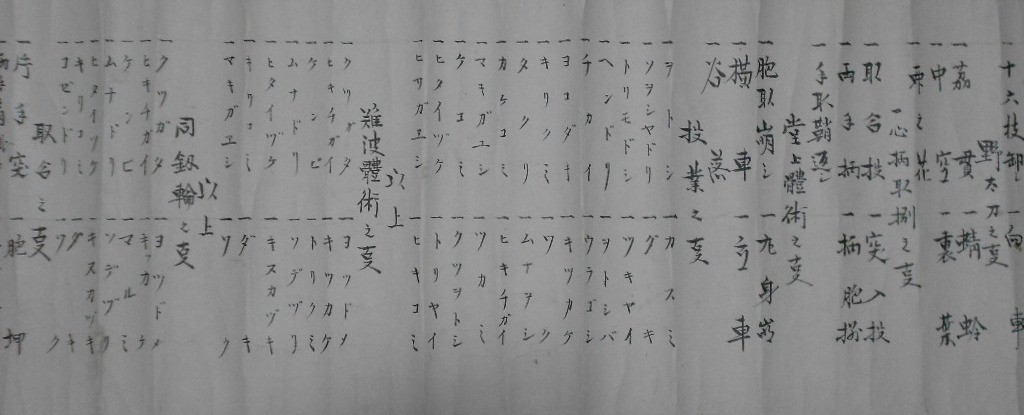 一十六技卸一向車
野太刀之叓
一 貫一蜻蛉
一中空一裏葉
一東之花
一心柄取捌之叓
一取合投一突入投
一両手柄一柄胞搦
一手取鞘返シ
堂上體術之叓
一胞取崩シ一九身崩
一横車一立車
一谷落
投業之叓
一ヲトシ一カスミ
一ソヲシヤドリ一グキ
一トリモドシ一ツキヤイ
一ヘンドリ一ヲトシバ
一チカイ一ウラゴシ
一ヨコダキ一キツカケ
一キリクミ一ワク
一タクリ一ムアヲシ
一カケコミ一ヒキチガイ
一マキガエシ一ツカミ
一ケコミ一クツヲトシ
一ヒタイヅケ一トリヤイ
一ヒサガエシ一ヒキコミ
以上
難波體術之叓
一クツガタ一ヨツドメ
一ヒキチガイ一キツカケ
一ケンビ一トリクミ
一ムナドリ一ソデヅリ
一ヒタイヅケ一キスカヅキ
一キリコミ一ダキ
一マキガエシ一ワク
以上
同釼輪之叓
一クツガタ一ヨツドメ
一ヒキチガイ一キツカケ
一ケンビ一マルミ
一ムナドリ一ソデヅリ
一ヒタイツケ一キスカヅキ
一キリコミ一ダキ
一コビンドリ一ワク
取合之叓
一片手突一胞押